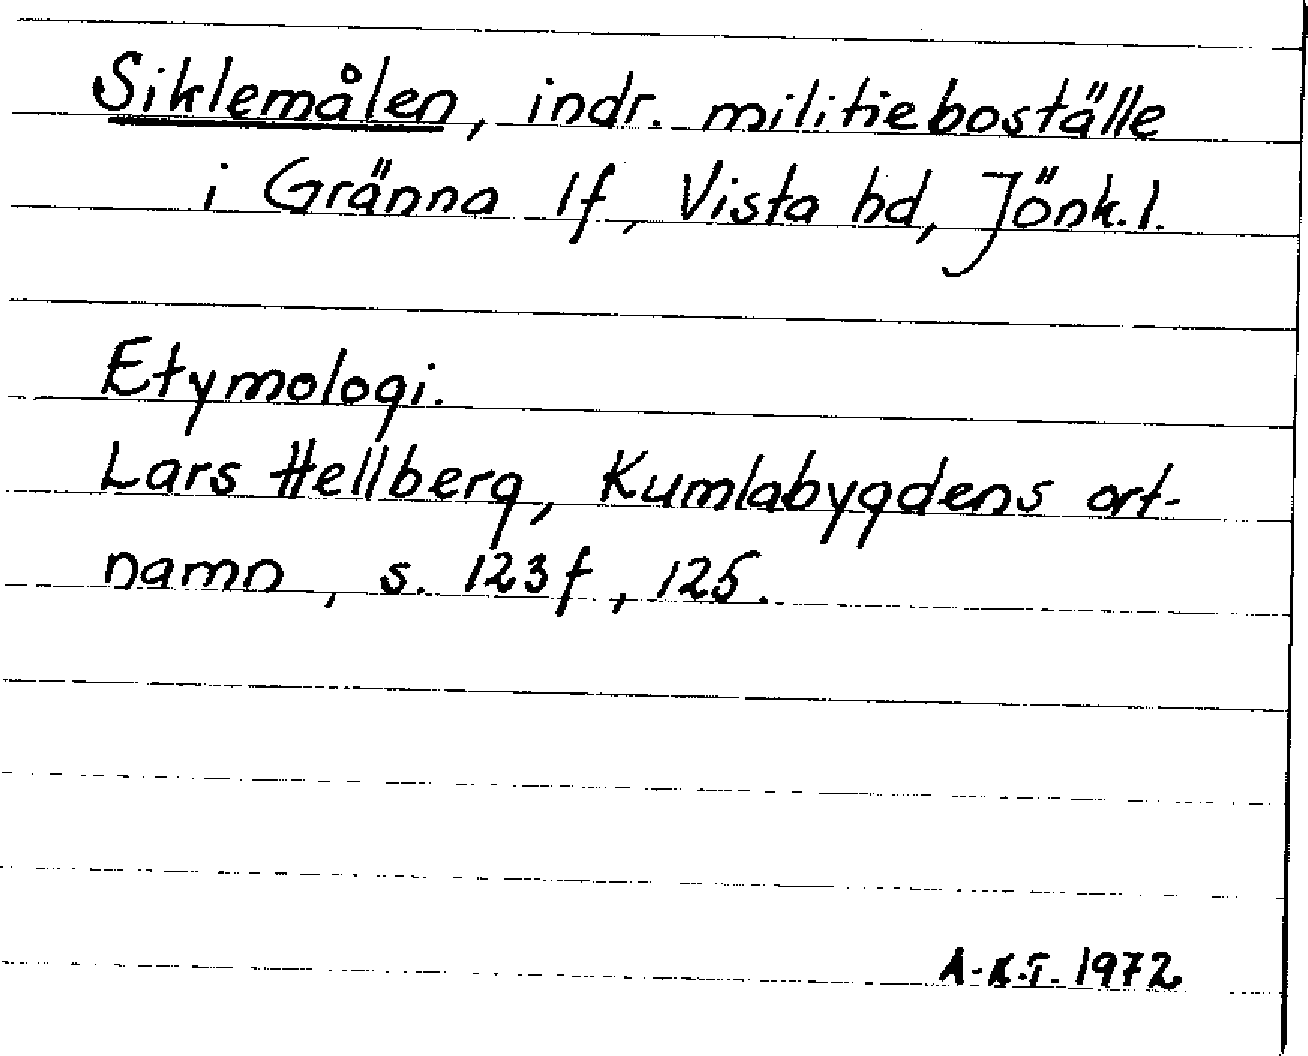 Siklemålen, indr. militieboställe
i Gränna lf, Vista hd, Jönk. l.
Etymologi.
Lars Hellberg, Kumlabygdens ort-
namn, s. 123 f, 125.
A-K.T. 1972